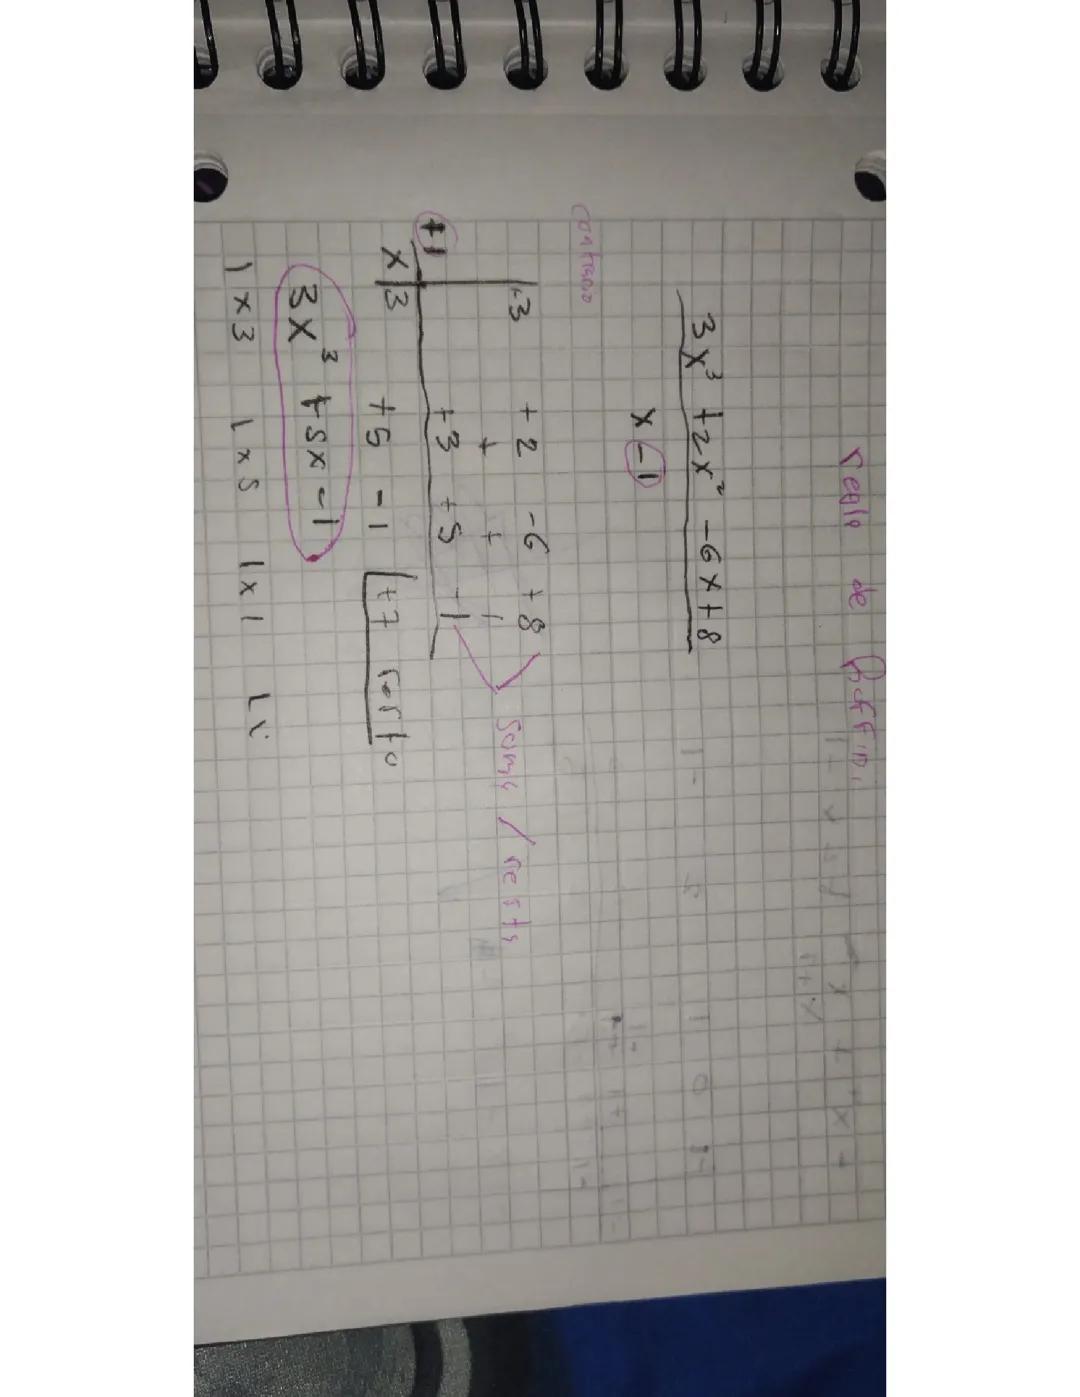 regla de Ruffini
3x³ +2x² -6x+8
x -1
contrario
+3 +2 -6 +8
+ + +
+1 +3 +5 -1 Suma / resta
x 3 +5 -1 +7 resto
3x³ +5x -1
1x3 1x5 1x1